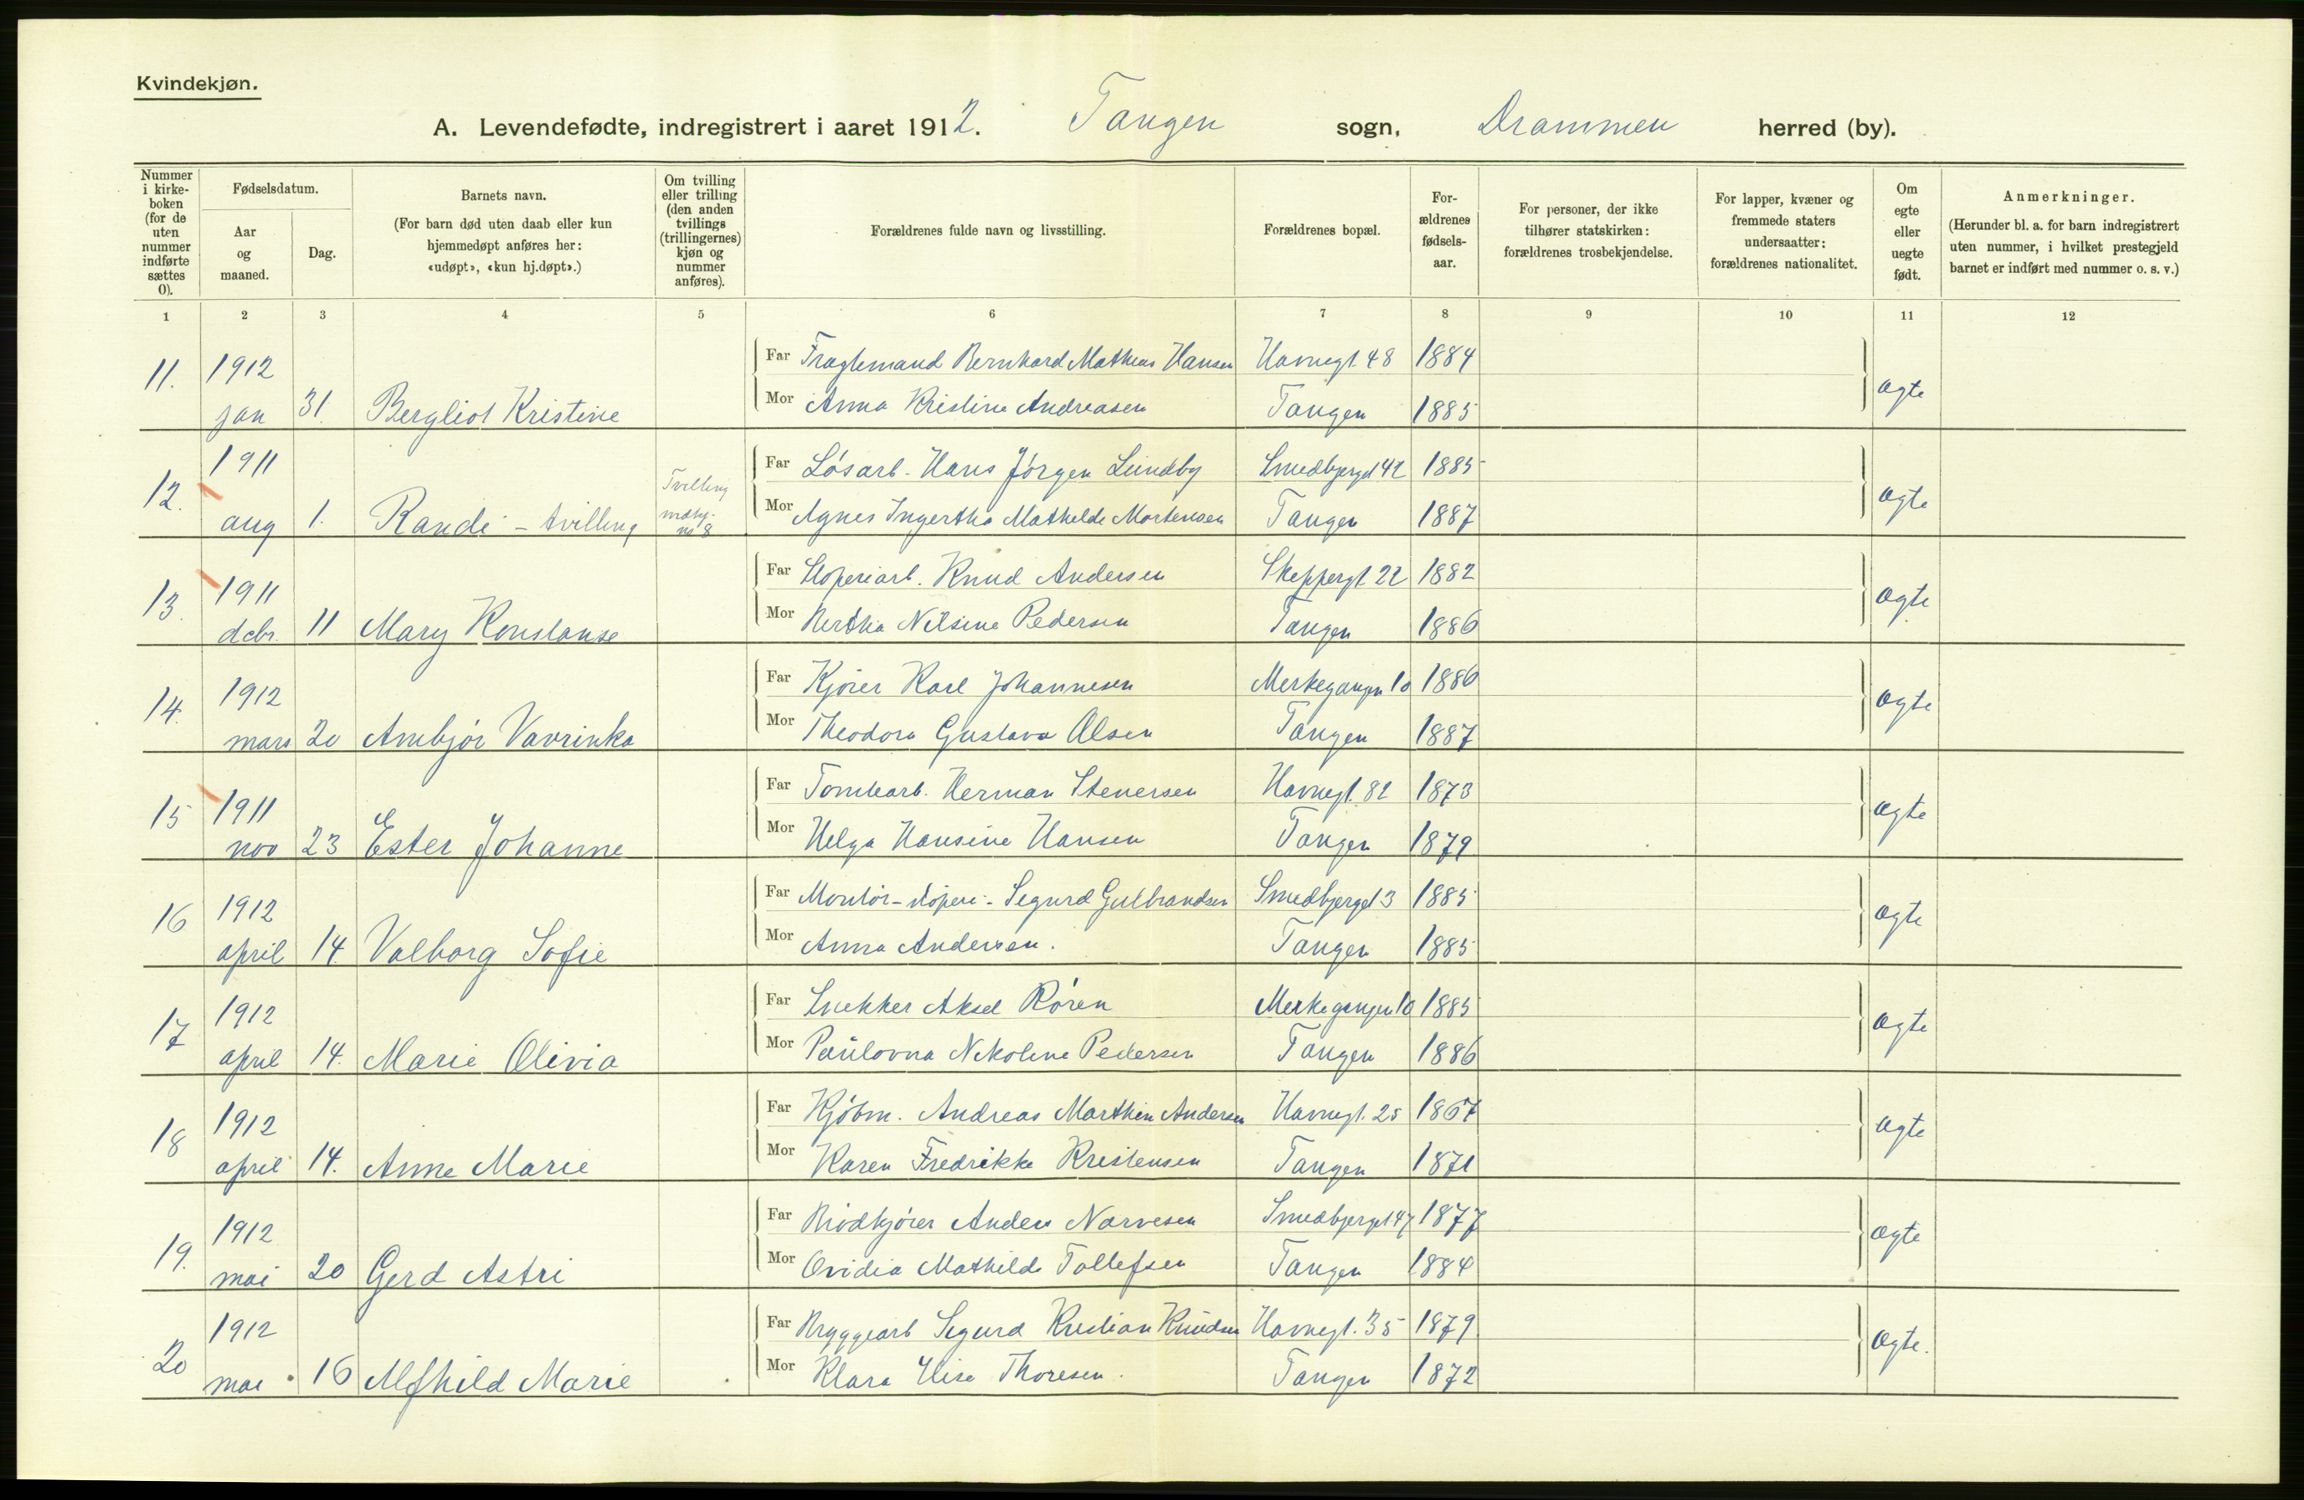 Kvindekjøn.
A. Levendefødte, indregistrert i aaret 1912. Tangen sogn, Drammen herred (by).
Nummer i kirke-boken (for de uten nummer indførte sættes 0).
Fødselsdatum.
Aar og maaned.
Dag.
Barnets navn.
(For barn død uten daab eller kun hjemmedøpt anføres her: «udøpt», «kun hj.døpt».)
Om tvilling eller trilling (den anden tvillings (trillingernes) kjøn og nummer anføres).
Forældrenes fulde navn og livsstilling.
Forældrenes bopæl.
For-ældrenes fødsels-aar.
For personer, der ikke tilhører statskirken: forældrenes trosbekjendelse.
For lapper, kvæner og fremmede staters undersaatter: forældrenes nationalitet.
Om egte eller uegte født.
Anmerkninger.
(Herunder bl. a. for barn indregistrert uten nummer, i hvilket prestegjeld barnet er indført med nummer o. s. v.)
1 2 3 4 5 6 7 8 9 10 11 12
1912 Far Fragtemand Bernhard Mathias Hansen Havnegt. 48 1884
11. jan 31. Bergliot Kristine Mor Anna Kristine Andreasen Tangen 1885 ægte
1911 Far Løsarb. Hans Jørgen Lundby Smedbjerget 42 1885
12. aug 1. Randi - tvilling Tvilling mdkj. no 8 Mor Agnes Ingertha Mathilde Mortensen Tangen 1887 ægte
1911 Far Støperiarb. Knud Andersen Skippergt. 22 1882
13. debr. 11 Mary Konstanse Mor Bertha Nilsine Pedersen Tangen 1886 ægte
1912 Far Kjører Karl Johannesen Merkegangen 10 1886
14. mars 20 Arnbjør Vavrinka Mor Theodora Gustava Olsen Tangen 1887 ægte
1911 Far Tomtearb. Herman Stenersen Havnegt. 82 1873
15 nov 23 Ester Johanne Mor Helga Hansine Hansen Tangen 1879 ægte
1912 Far Montør - støperi - Sigurd Gulbrandsen Smedbjerget 3 1885
16 april 14. Valborg Sofie Mor Anna Andersen. Tangen 1885 ægte
1912 Far Snekker Aksel Røren Merkegangen 10 1885
17 april 14. Marie Olivia Mor Paulovna Nikoline Pedersen Tangen 1886 ægte
1912 Far Kjøbm. Andreas Marthin Andersen Havnegt. 25 1867
18 april 14. Anne Marie Mor Karen Fredrikke Kristensen Tangen 1871 ægte
1912 Far Brødkjører Anders Narvesen Smedbjerget 47 1877
19. mai 20 Gerd Astri Mor Ovidia Mathilde Tollefsen Tangen 1884 ægte
1912 Far Bryggearb Sigurd Kristian Knudsen Havnegt. 35 1879
20 mai 16 Alfhild Marie Mor Klara Elise Thoresen. Tangen 1872 ægte.